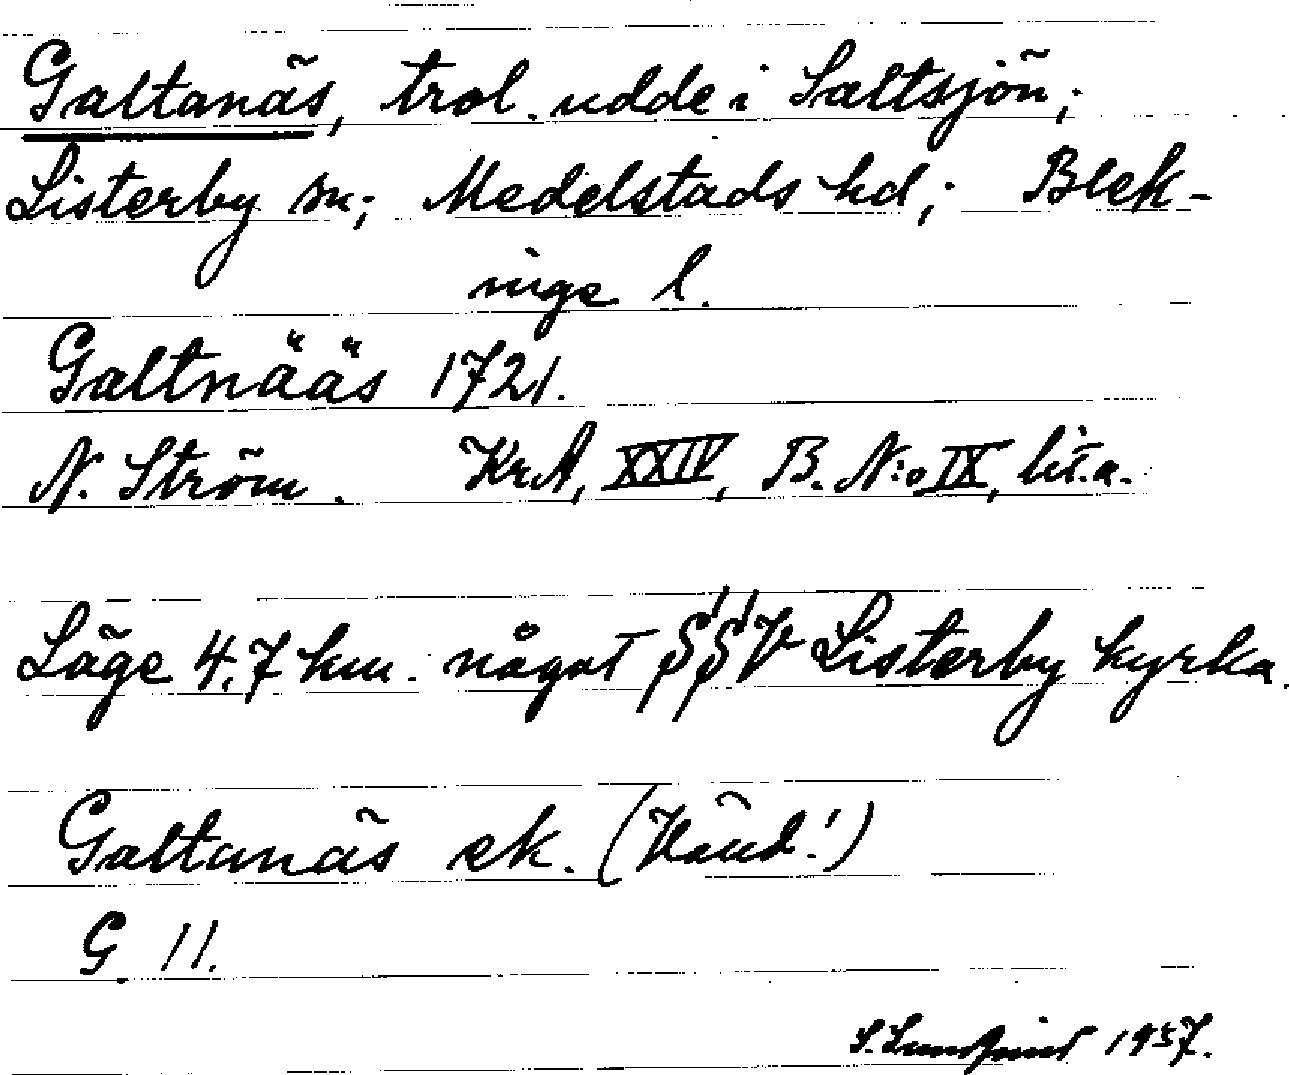 Galtanäs, trol. udde i Saltsjön;
Listerby sn; Medelstads hd; Blek-
inge l.
Galtnääs 1721.
N. Ström. KrA, XXIV, B. N:o IX, lit. a.
Läge 4,7 km. något SSV Listerby kyrka.
Galtanäs ek. (Vänd!)
G. 11.
S. Lundqvist 1957.